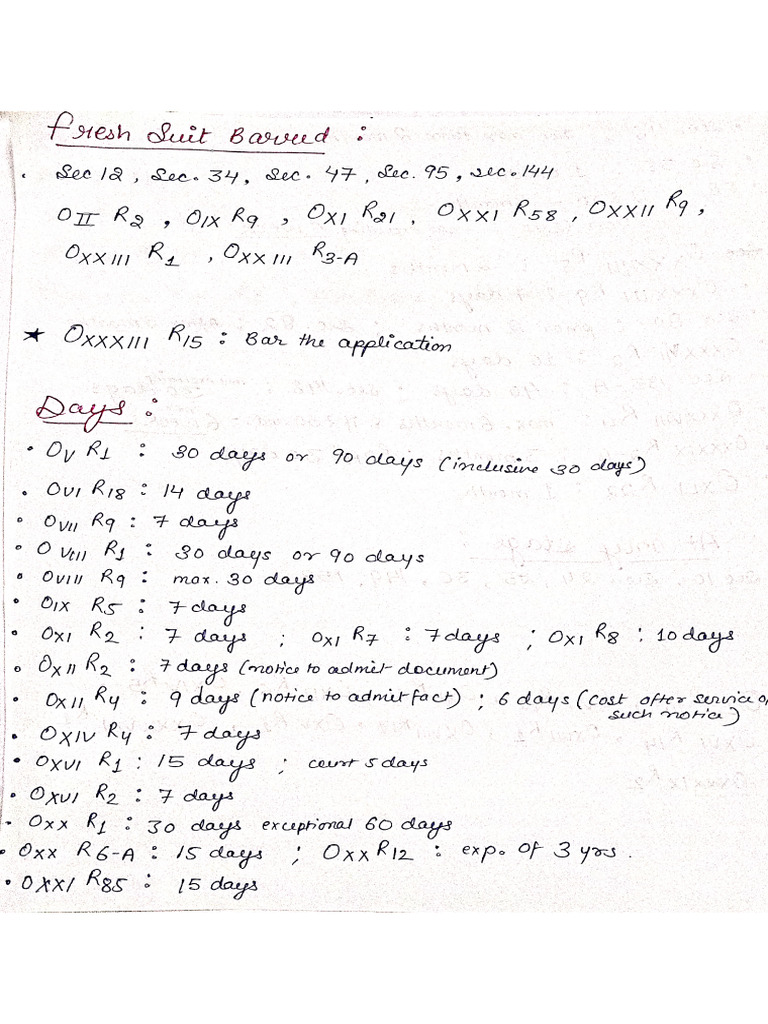 Fresh Suit Barred :
• Sec 12, Sec. 34, Sec. 47, Sec. 95, Sec. 144
OII R2, OIX R9, OXI R21, OXXI R58, OXXII R9,
OXXIII R1, OXXIII R3-A
★ OXXXIII R15 : Bar the application
Days :
• OV R1 : 30 days or 90 days (inclusive 30 days)
• OVI R18 : 14 days
• OVII R9 : 7 days
• OVIII R1 : 30 days or 90 days
• OVIII R9 : max. 30 days
• OIX R5 : 7 days
• OXI R2 : 7 days ; OXI R7 : 7 days ; OXI R8 : 10 days
• OXII R2 : 7 days (notice to admit document)
• OXII R4 : 9 days (notice to admit fact) ; 6 days (cost after service of
such notice)
• OXIV R4 : 7 days
• OXVI R1 : 15 days ; court 5 days
• OXVI R2 : 7 days
• OXX R1 : 30 days exceptional 60 days
• OXX R6-A : 15 days ; OXX R12 : exp. of 3 yrs.
• OXXI R85 : 15 days